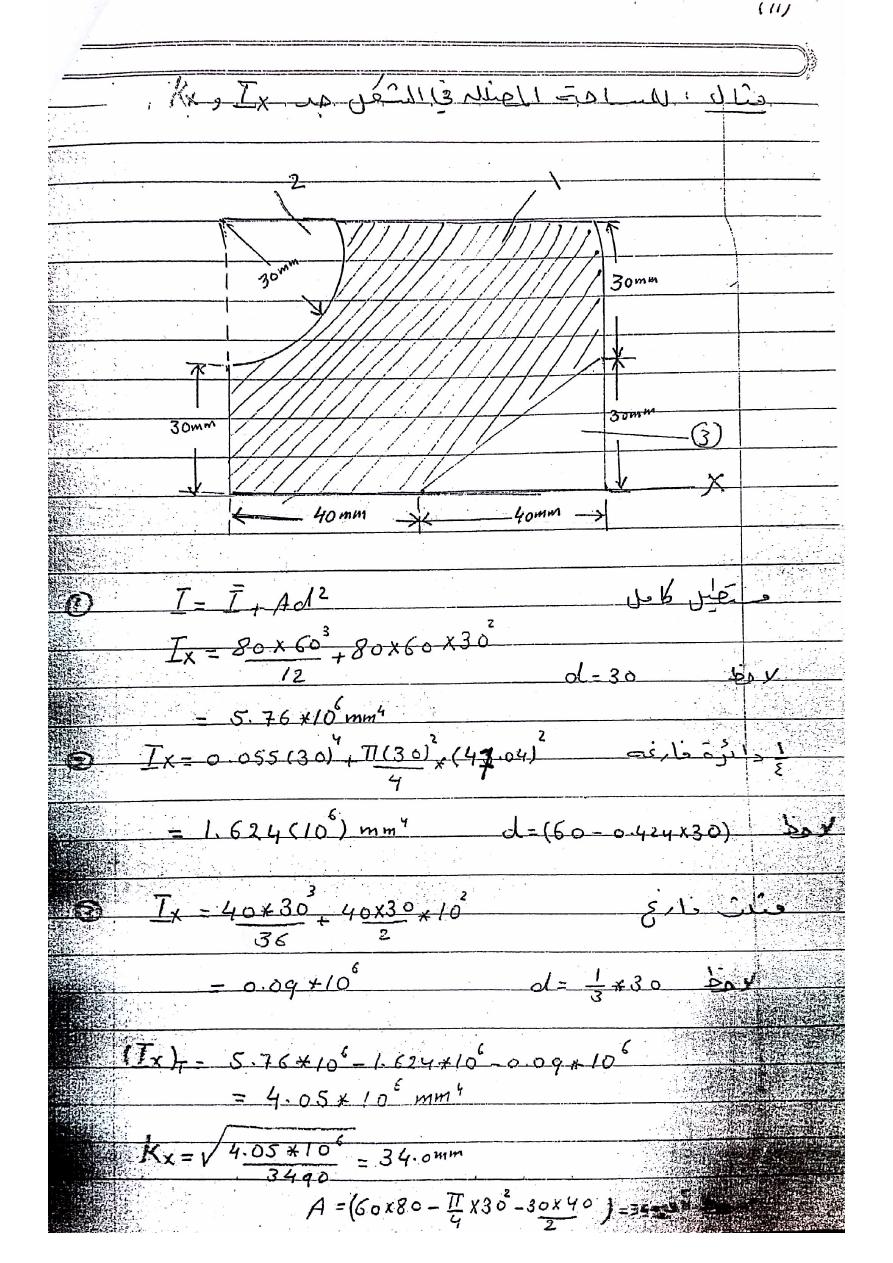 (11)
مثال : للمساحة المضلله في الشكل جد Ix و Kx .
2
1
30mm
30mm
30mm
30mm
3
X
40mm
40mm
1 I = Ī + Ad² مستطيل كامل
Ix = 80×60³/12 + 80×60×30²
d=30 لاحظ
= 5.76*10⁶ mm⁴
2 Ix = 0.055(30)⁴ + π(30)²/4 * (47.04)² ¼ دائرة فارغه
= 1.624(10⁶) mm⁴ d=(60-0.424×30) لاحظ
3 Ix = 40*30³/36 + 40×30/2 * 10² مثلث فارغ
= 0.09*10⁶ d= 1/3 *30 لاحظ
(Ix)T = 5.76*10⁶ - 1.624*10⁶ - 0.09*10⁶
= 4.05*10⁶ mm⁴
Kx = √(4.05*10⁶/3490) = 34.0mm
A = (60×80 - π/4 ×30² - 30×40/2) =